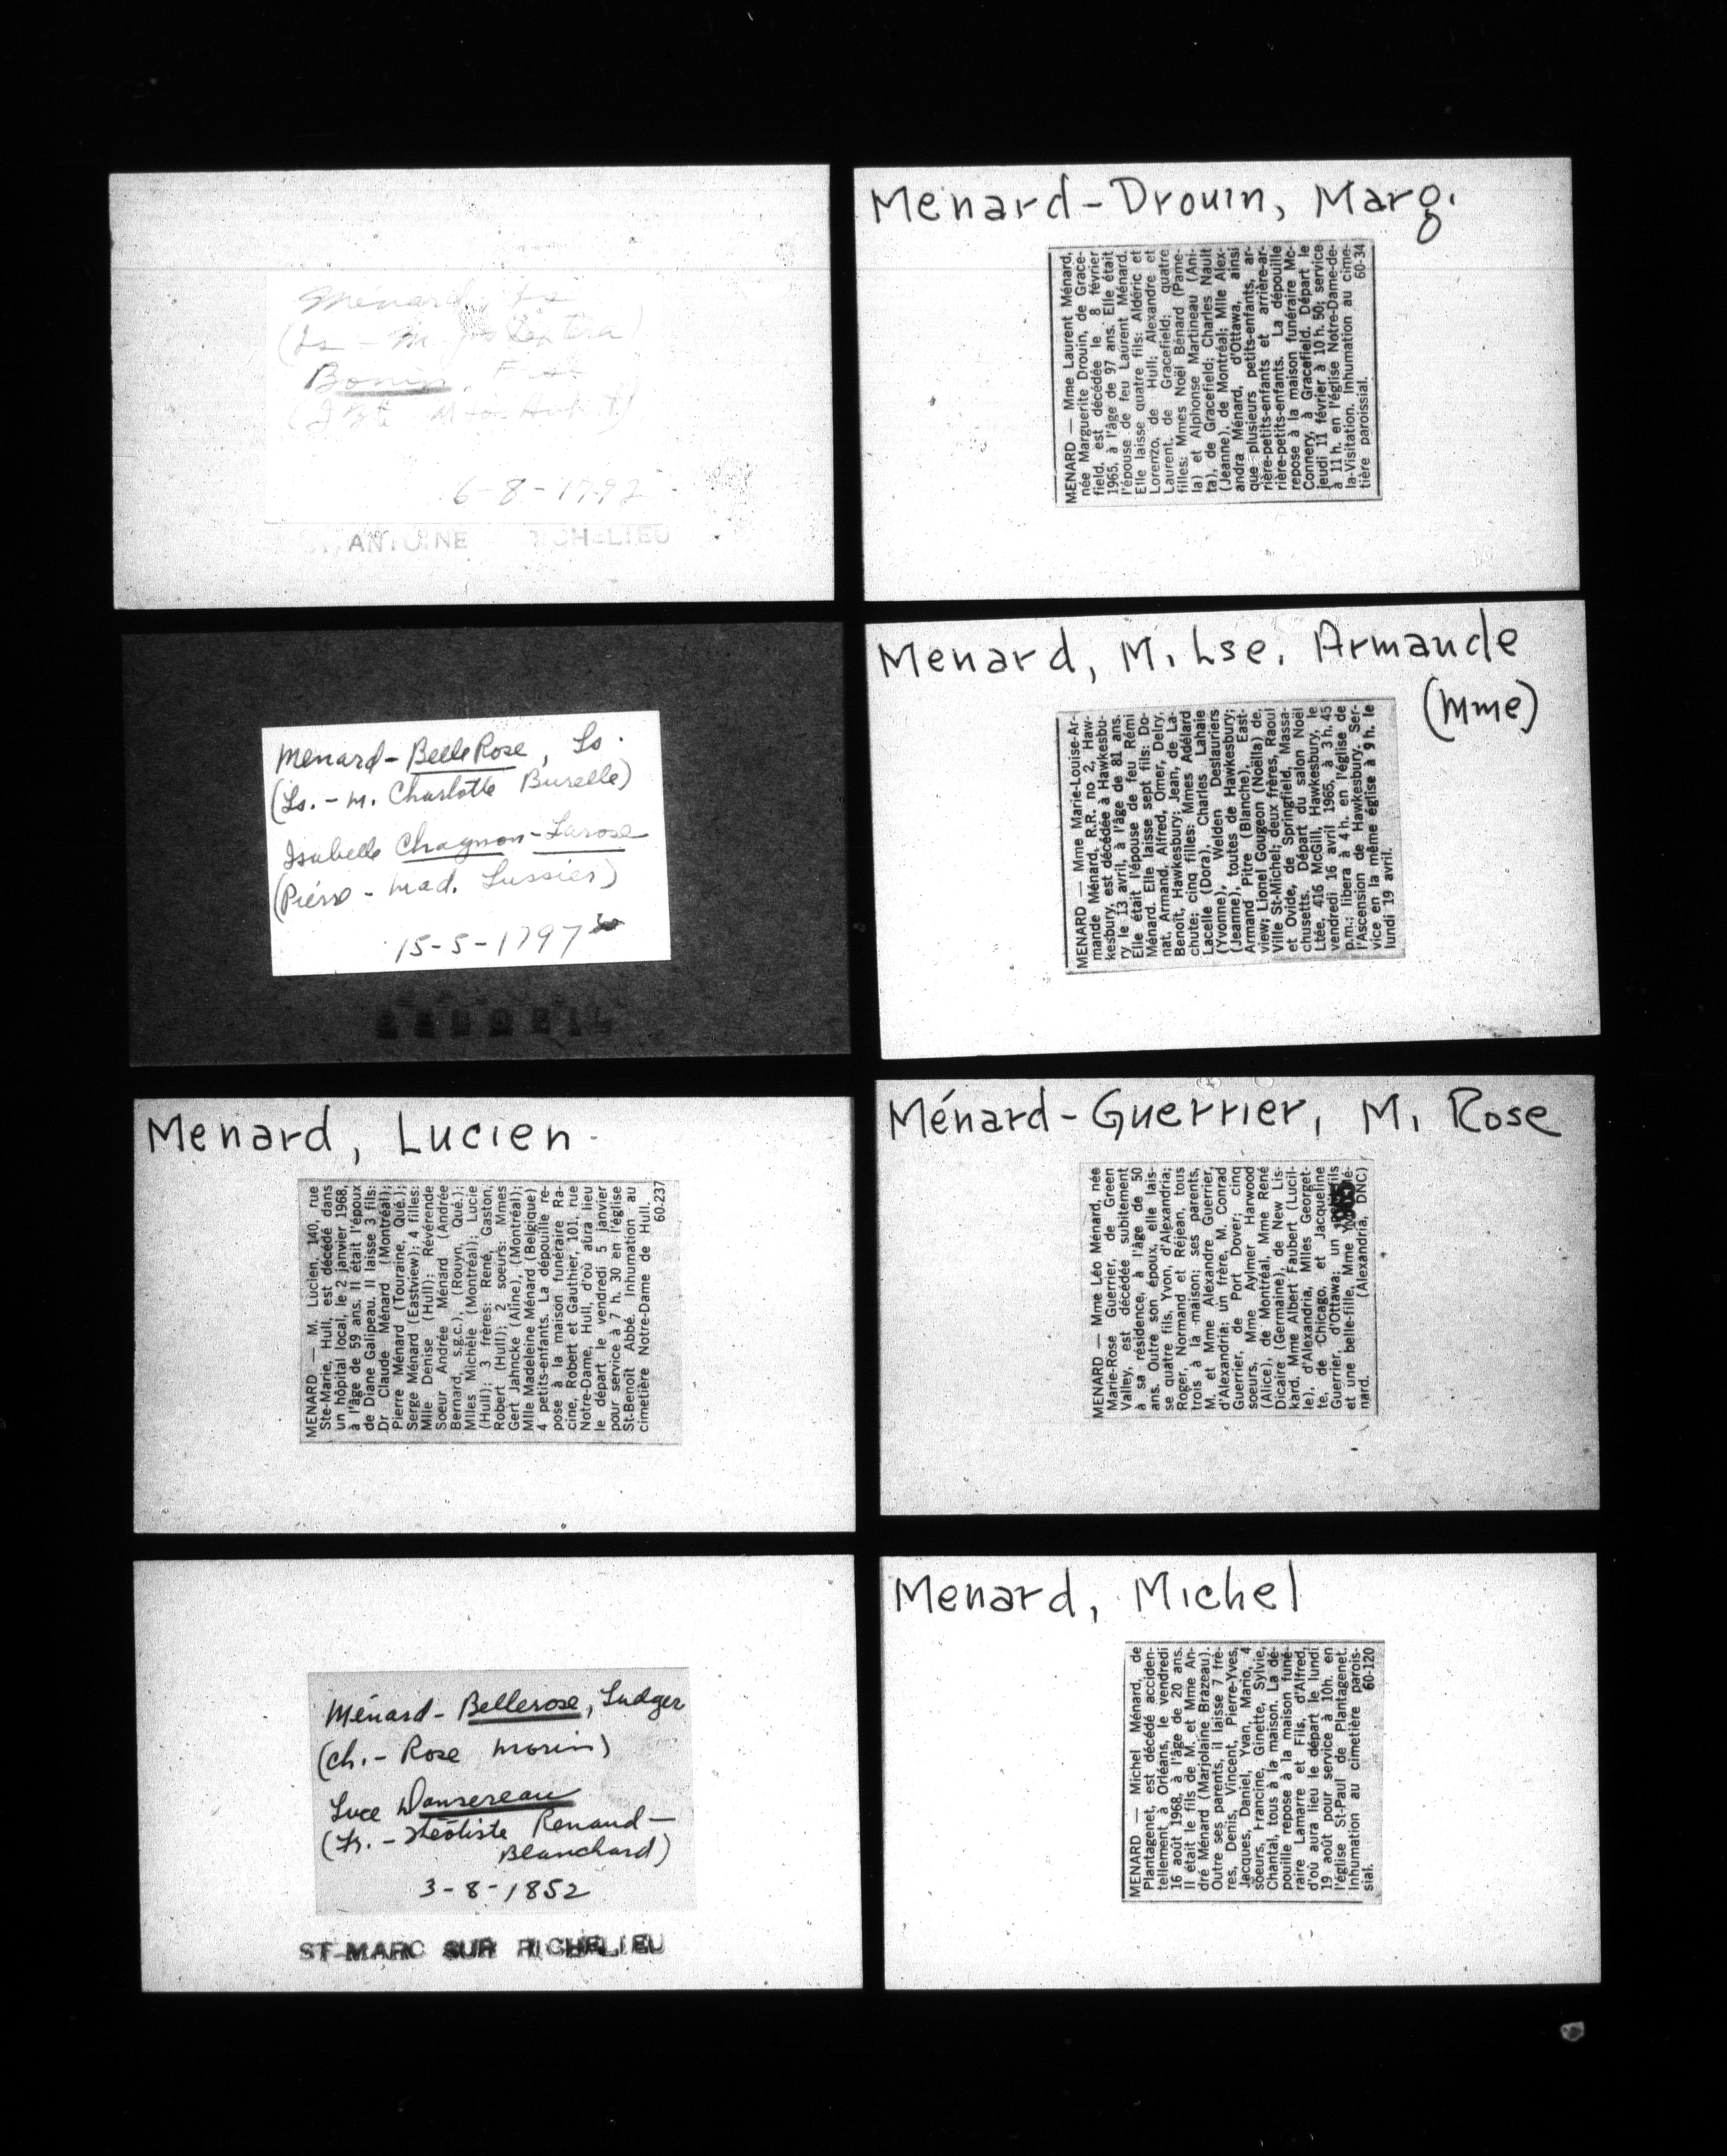 Menard, Ls
Bonin,
6-8-1792
ANTOINE RICHELIEU
Menard-BelleRose, Ls.
(Ls. - m. Charlotte Burelle)
Isabelle Chagnon-Larose
(Pierre - Mad. Lussier)
15-5-1797
BELOEIL
Menard, Lucien
MENARD — M. Lucien, 140, rue
Ste-Marie, Hull, est décédé dans
un hôpital local, le 2 janvier 1968,
à l'âge de 59 ans. Il était l'époux
de Diane Galipeau. Il laisse 3 fils:
Dr Claude Ménard (Montréal);
Pierre Ménard (Touraine, Qué.);
Serge Ménard (Eastview); 4 filles:
Mlle Denise (Hull); Révérende
Soeur Andrée Ménard (Andrée
Bernard, s.g.c.), (Rouyn, Qué.);
Mlles Michèle (Montréal); Lucie
(Hull); 3 frères: René, Gaston,
Robert (Hull); 2 soeurs: Mmes
Gert Jahncke (Aline), (Montréal);
Mlle Madeleine Ménard (Belgique);
4 petits-enfants. La dépouille re-
pose à la maison funéraire Ra-
cine, Robert et Gauthier, 101, rue
Notre-Dame, Hull, d'où aura lieu
le départ le vendredi 5 janvier
pour service à 7 h. 30 en l'église
St-Benoît Abbé. Inhumation au
cimetière Notre-Dame de Hull.
60-237
Ménard-Bellerose, Ludger
(Ch. - Rose Morin)
Luce Dansereau
(Fr. - Théotiste Renaud-
Blanchard)
3-8-1852
ST-MARC SUR RICHELIEU
Menard-Drouin, Marg.
MENARD — Mme Laurent Ménard,
née Marguerite Drouin, de Grace-
field, est décédée le 8 février
1965, à l'âge de 97 ans. Elle était
l'épouse de feu Laurent Ménard.
Elle laisse quatre fils: Aldéric et
Lorenzo, de Hull; Alexandre et
Laurent, de Gracefield; quatre
filles: Mmes Noël Bénard (Pamé-
la) et Alphonse Martineau (Ani-
ta), de Gracefield; Charles Nault
(Jeanne), de Montréal; Mlle Alex-
andra Ménard, d'Ottawa, ainsi
que plusieurs petits-enfants, ar-
rière-petits-enfants et arrière-ar-
rière-petits-enfants. La dépouille
repose à la maison funéraire Mc-
Connery, à Gracefield. Départ le
jeudi 11 février à 10 h. 50; service
à 11 h. en l'église Notre-Dame-de-
la-Visitation. Inhumation au cime-
tière paroissial. 60-34
Menard, M. Lse. Armande
(Mme)
MENARD — Mme Marie-Louise-Ar-
mande Ménard, R.R. no 2, Haw-
kesbury, est décédée à Hawkesbu-
ry le 13 avril, à l'âge de 81 ans.
Elle était l'épouse de feu Rémi
Ménard. Elle laisse sept fils: Do-
nat, Armand, Alfred, Omer, Delry,
Benoît, Hawkesbury; Jean, de La-
chute; cinq filles: Mmes Adélard
Lacelle (Dora), Charles Lahaie
(Yvonne), Welden Deslauriers
(Jeanne), toutes de Hawkesbury;
Armand Pitre (Blanche), East-
view; Lionel Gougeon (Noëlla) de,
Ville St-Michel; deux frères, Raoul
et Ovide, de Springfield, Massa-
chusetts. Départ du salon Noël
Ltée, 416 McGill, Hawkesbury, le
vendredi 16 avril 1965, à 3 h. 45
p.m.: libera à 4 h, en l'église de
l'Ascension de Hawkesbury. Ser-
vice en la même église à 9 h. le
lundi 19 avril.
Ménard-Guerrier, M. Rose
MENARD — Mme Léo Ménard, née
Marie-Rose Guerrier, de Green
Valley, est décédée subitement
à sa résidence, à l'âge de 50
ans. Outre son époux, elle lais-
se quatre fils, Yvon, d'Alexandria;
Roger, Normand et Réjean, tous
trois à la maison; ses parents,
M. et Mme Alexandre Guerrier,
d'Alexandria; un frère, M. Conrad
Guerrier, de Port Dover; cinq
soeurs, Mme Aylmer Harwood
(Alice), de Montréal, Mme René
Dicaire (Germaine), de New Lis-
kard, Mme Albert Faubert (Lucil-
le), d'Alexandria, Mlles Georget-
te, de Chicago, et Jacqueline
Guerrier, d'Ottawa; un fils
et une belle-fille, Mme Mé-
nard. (Alexandria, DNC)
Menard, Michel
MENARD — Michel Ménard, de
Plantagenet, est décédé acciden-
tellement à Orléans, le vendredi
16 août 1968, à l'âge de 20 ans.
Il était le fils de M. et Mme An-
dré Ménard (Marjolaine Brazeau).
Outre ses parents, il laisse 7 frè-
res, Denis, Vincent, Pierre-Yves,
Jacques, Daniel, Yvan, Mario, 4
soeurs, Francine, Ginette, Sylvie,
Chantal, tous à la maison. La dé-
pouille repose à la maison funé-
raire Lamarre et Fils, d'Alfred,
d'où aura lieu le départ le lundi
19 août pour service à 10h. en
l'église St-Paul de Plantagenet.
Inhumation au cimetière parois-
sial. 60-120